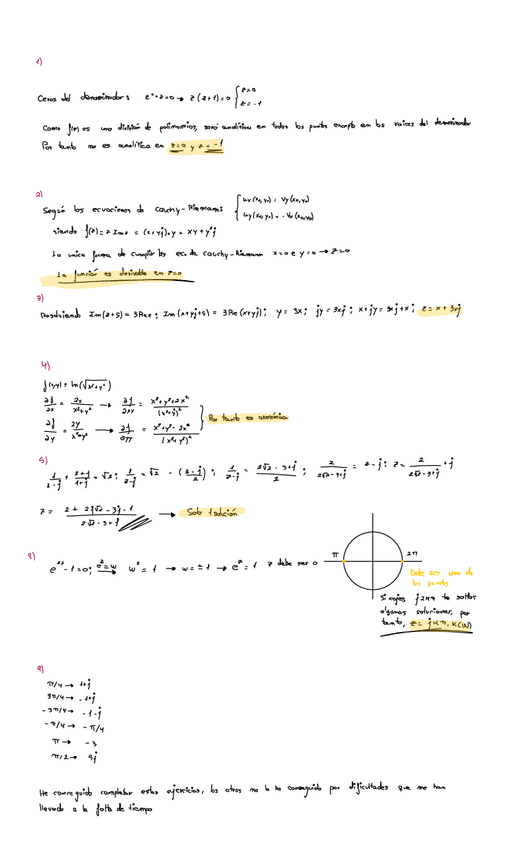 1)
Ceros del denominador: z²+z=0 → z(z+1)=0 { z=0
z=-1
Como f(z) es una división de polinomios, será analítica en todos los puntos excepto en las raíces del denominador
Por tanto no es analítica en z=0 y z=-1
2)
Según las ecuaciones de Cauchy-Riemann: { Ux(x₀,y₀) = Vy(x₀,y₀)
Uy(x₀,y₀) = -Vx(x₀,y₀)
siendo f(z) = z Im z = (x+yj)·y = xy + y²j
La única forma de cumplir las ec. de Cauchy-Riemann x=0 e y=0 → z=0
La función es derivable en z=0
3)
Resolviendo Im(z+5) = 3Re z; Im(x+yj+5) = 3Re(x+yj); y = 3x; jy = 3xj; x+jy = 3xj+x; z = x+3xj
4)
f(x,y) = ln(√x²+y²)
Por tanto es armónica
5)
→ Solo 1 solución
8)
-1=0; → w²=1 → w=±1 → e^z=1 z debe ser 0
π 2π
Debe ser uno de
los puntos
Si coges j2πn te saltas
algunas soluciones, por
tanto, z = jKπ, K∈
9)
π/4 → 1+j
3π/4 → -1+j
-3π/4 → -1-j
-π/4 → -π/4
π → -3
π/2 → 9j
He conseguido completar estos ejercicios, los otros no lo he conseguido por dificultades que me han
llevado a la falta de tiempo